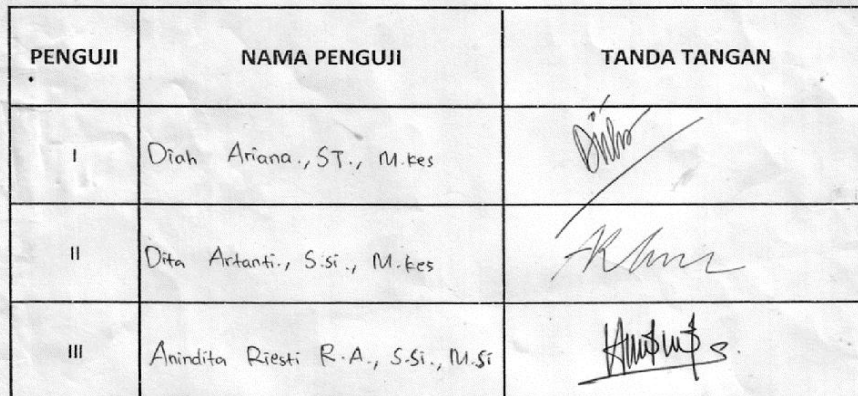 PENGUJI NAMA PENGUJI TANDA TANGAN
I Diah Ariana., ST., M.kes
II Dita Artanti., S.si., M.kes
III Anindita Riesti R.A., S.Si., M.Si